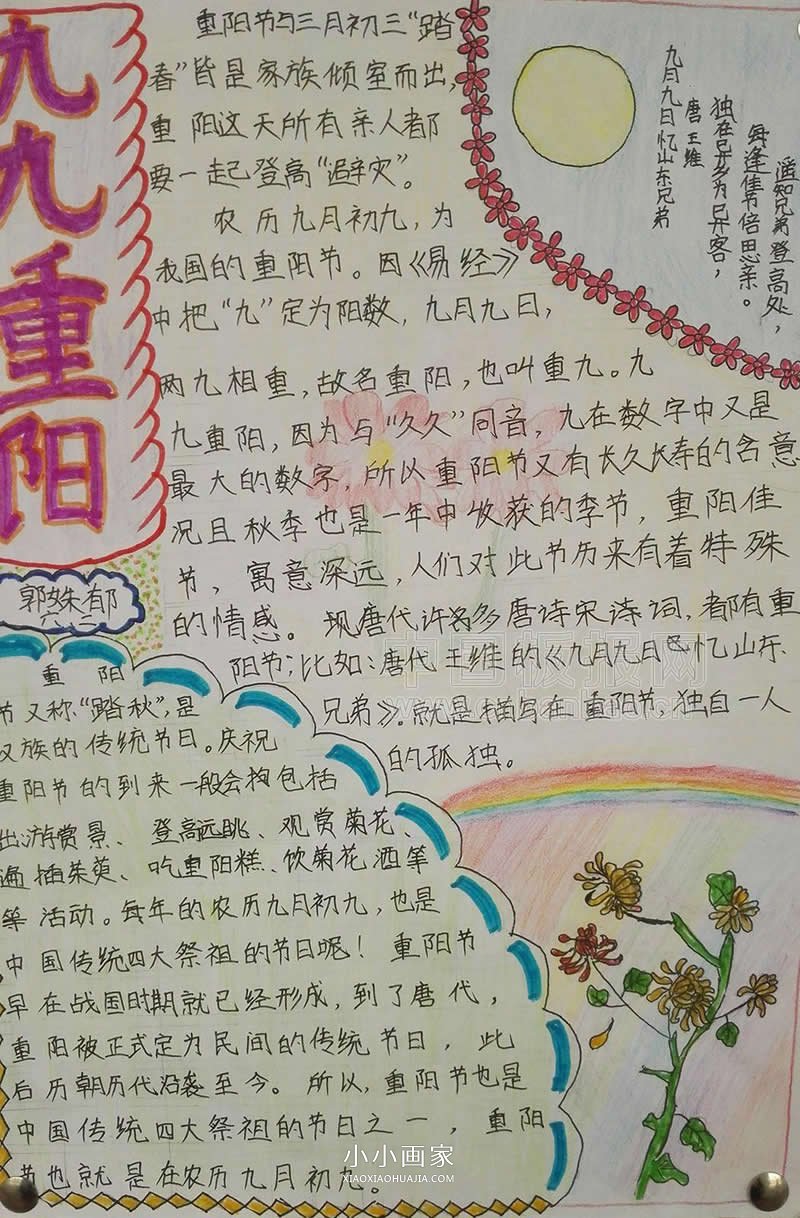 九九重阳
重阳节与三月初三“踏
春”皆是家族倾室而出,
重阳这天所有亲人都
要一起登高“避灾”。
农历九月初九,为
我国的重阳节。因《易经》
中把“九”定为阳数,九月九日,
两九相重,故名重阳,也叫重九。九
九重阳,因为与“久久”同音,九在数字中又是
最大的数字,所以重阳节又有长久长寿的含意
况且秋季也是一年中收获的季节,重阳佳
节,寓意深远,人们对此节历来有着特殊
的情感。现唐代许多唐诗宋诗词,都有重
阳节;比如:唐代王维的《九月九日忆山东
兄弟》。就是描写在重阳节,独自一人
的孤独。
九月九日忆山东兄弟
唐 王维
独在异乡为异客,
每逢佳节倍思亲。
遥知兄弟登高处,
郭姝郁
六.二
重阳
节又称“踏秋”,是
汉族的传统节日。庆祝
重阳节的到来一般会包括
出游赏景、登高远眺、观赏菊花、
遍插茱萸、吃重阳糕、饮菊花酒等
等活动。每年的农历九月初九,也是
中国传统四大祭祖的节日呢!重阳节
早在战国时期就已经形成,到了唐代,
重阳被正式定为民间的传统节日,此
后历朝历代沿袭至今。所以,重阳节也是
中国传统四大祭祖的节日之一,重阳
节也就是在农历九月初九。
中国板报网
小小画家
XIAOXIAOHUAJIA.COM